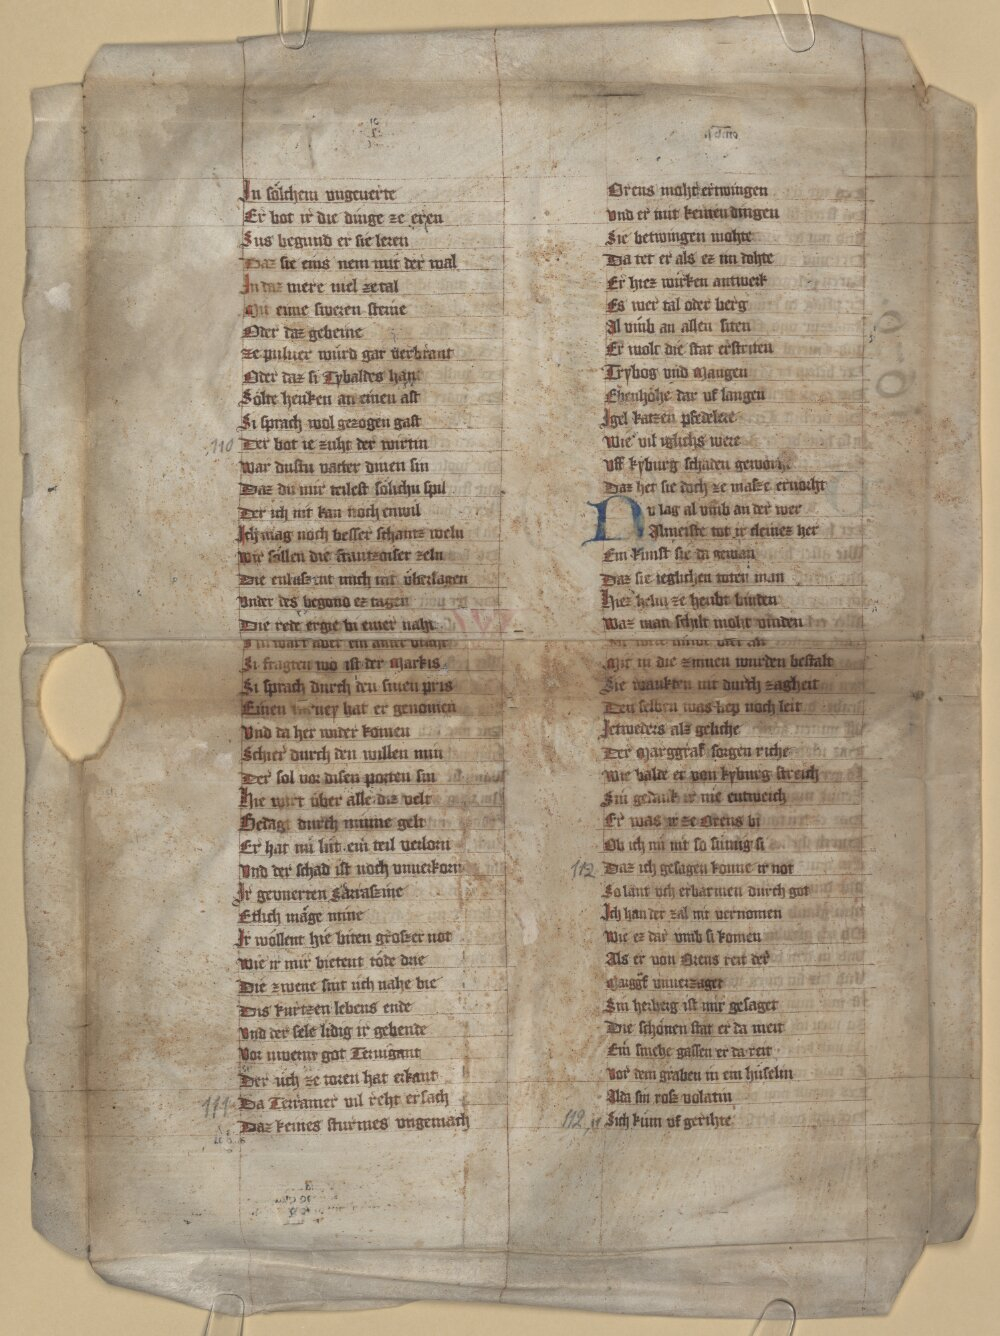 In sölchem vngeuerte
Er bot ir die dinge ze eren
Sus begund er sie leren
Daz sie eins nem mit der wal
In daz mere viel ze tal
Mit eine swezen steine
Oder daz gebeine
ze puluer würd gar verbrant
Oder daz si Tybaldes hant
Sölte henken an einen ast
Si sprach wol gezogen gast
110 Der bot ie zuht der wirtin
War dustu vatter dinen sin
Daz du mir teilest solichu spil
Der ich nit kan noch enwil
Ich mag noch besser schantz weln
wir süllen die frantzoiser zeln
Die enlaszent mich nit überlagen
vnder des begond ez tagen
Die rede ergie in einer naht
Si fragten wo ist der Markis
Si sprach durch den sinen pris
Einen turney hat er genomen
Vnd da her wider komen
Schier durch den willen min
Der sol vor disen porten sin
Hie wirt über alle diz velt
Beiagt durch minne gelt
Er hat nü lüt ein teil verlorn
Vnd der schad ist noch vnuerkorn
Ir gevnerten Sarrasine
Etlich mäge mine
Ir wöllent hie biten groszer not
Wie ir mir bietent töde drie
Die zwene sint üch nahe bie
Dis kurtzen lebens ende
Vnd der sele lidig ir gebende
Vor iuwerm got Teruigant
Der üch ze toren hat erkant
111 Da Terramer vil reht ersach
Daz keines sturmes vngemach
Orens moht ertwingen
vnd er mit keinen dingen
Sie betwingen mohte
Da tet er als ez im dohte
Er hiez wirken antwerk
Es wer tal oder berg
Al vmb an allen siten
Er wolt die stat erstriten
Trybog vnd Mangen
Ebenhöhe dar vf langen
Igel katzen pfedelere
Wie vil iglichs were
Vff kyburg schaden
Daz het sie doch ze masze ervorht
Du lag al vmb an der wer
Almeiste tot ir cleinez her
Ein kunst sie da gewan
Daz sie ieglichen toten man
Hiez helm ze heubt binden
Waz man schilt moht vinden
Mir in die zinnen wurden bestalt
Sie wankten nit durch zagheit
Den selben was liep noch leit
Ietweders als geliche
Der Marggraf sorgen riche
Wie balde er von kyburg streich
Sin gedank ir nie entweich
Er was ir ze Orens bi
Ob ich nü nit so sinnig si
112 Daz ich gesagen konne ir not
So lant üch erbarmen durch got
Ich han der zal nit vernomen
Wie ez dar vmb si komen
Als er von Orens reit der
Marggf vnuerzaget
Sin herberg ist mir gesaget
Die schönen stat er da meit
Ein smehe gassen er da reit
Vor dem graben in ein hüselin
Alda sin rosz volatin
112, 11 Sich kum vf gerihte